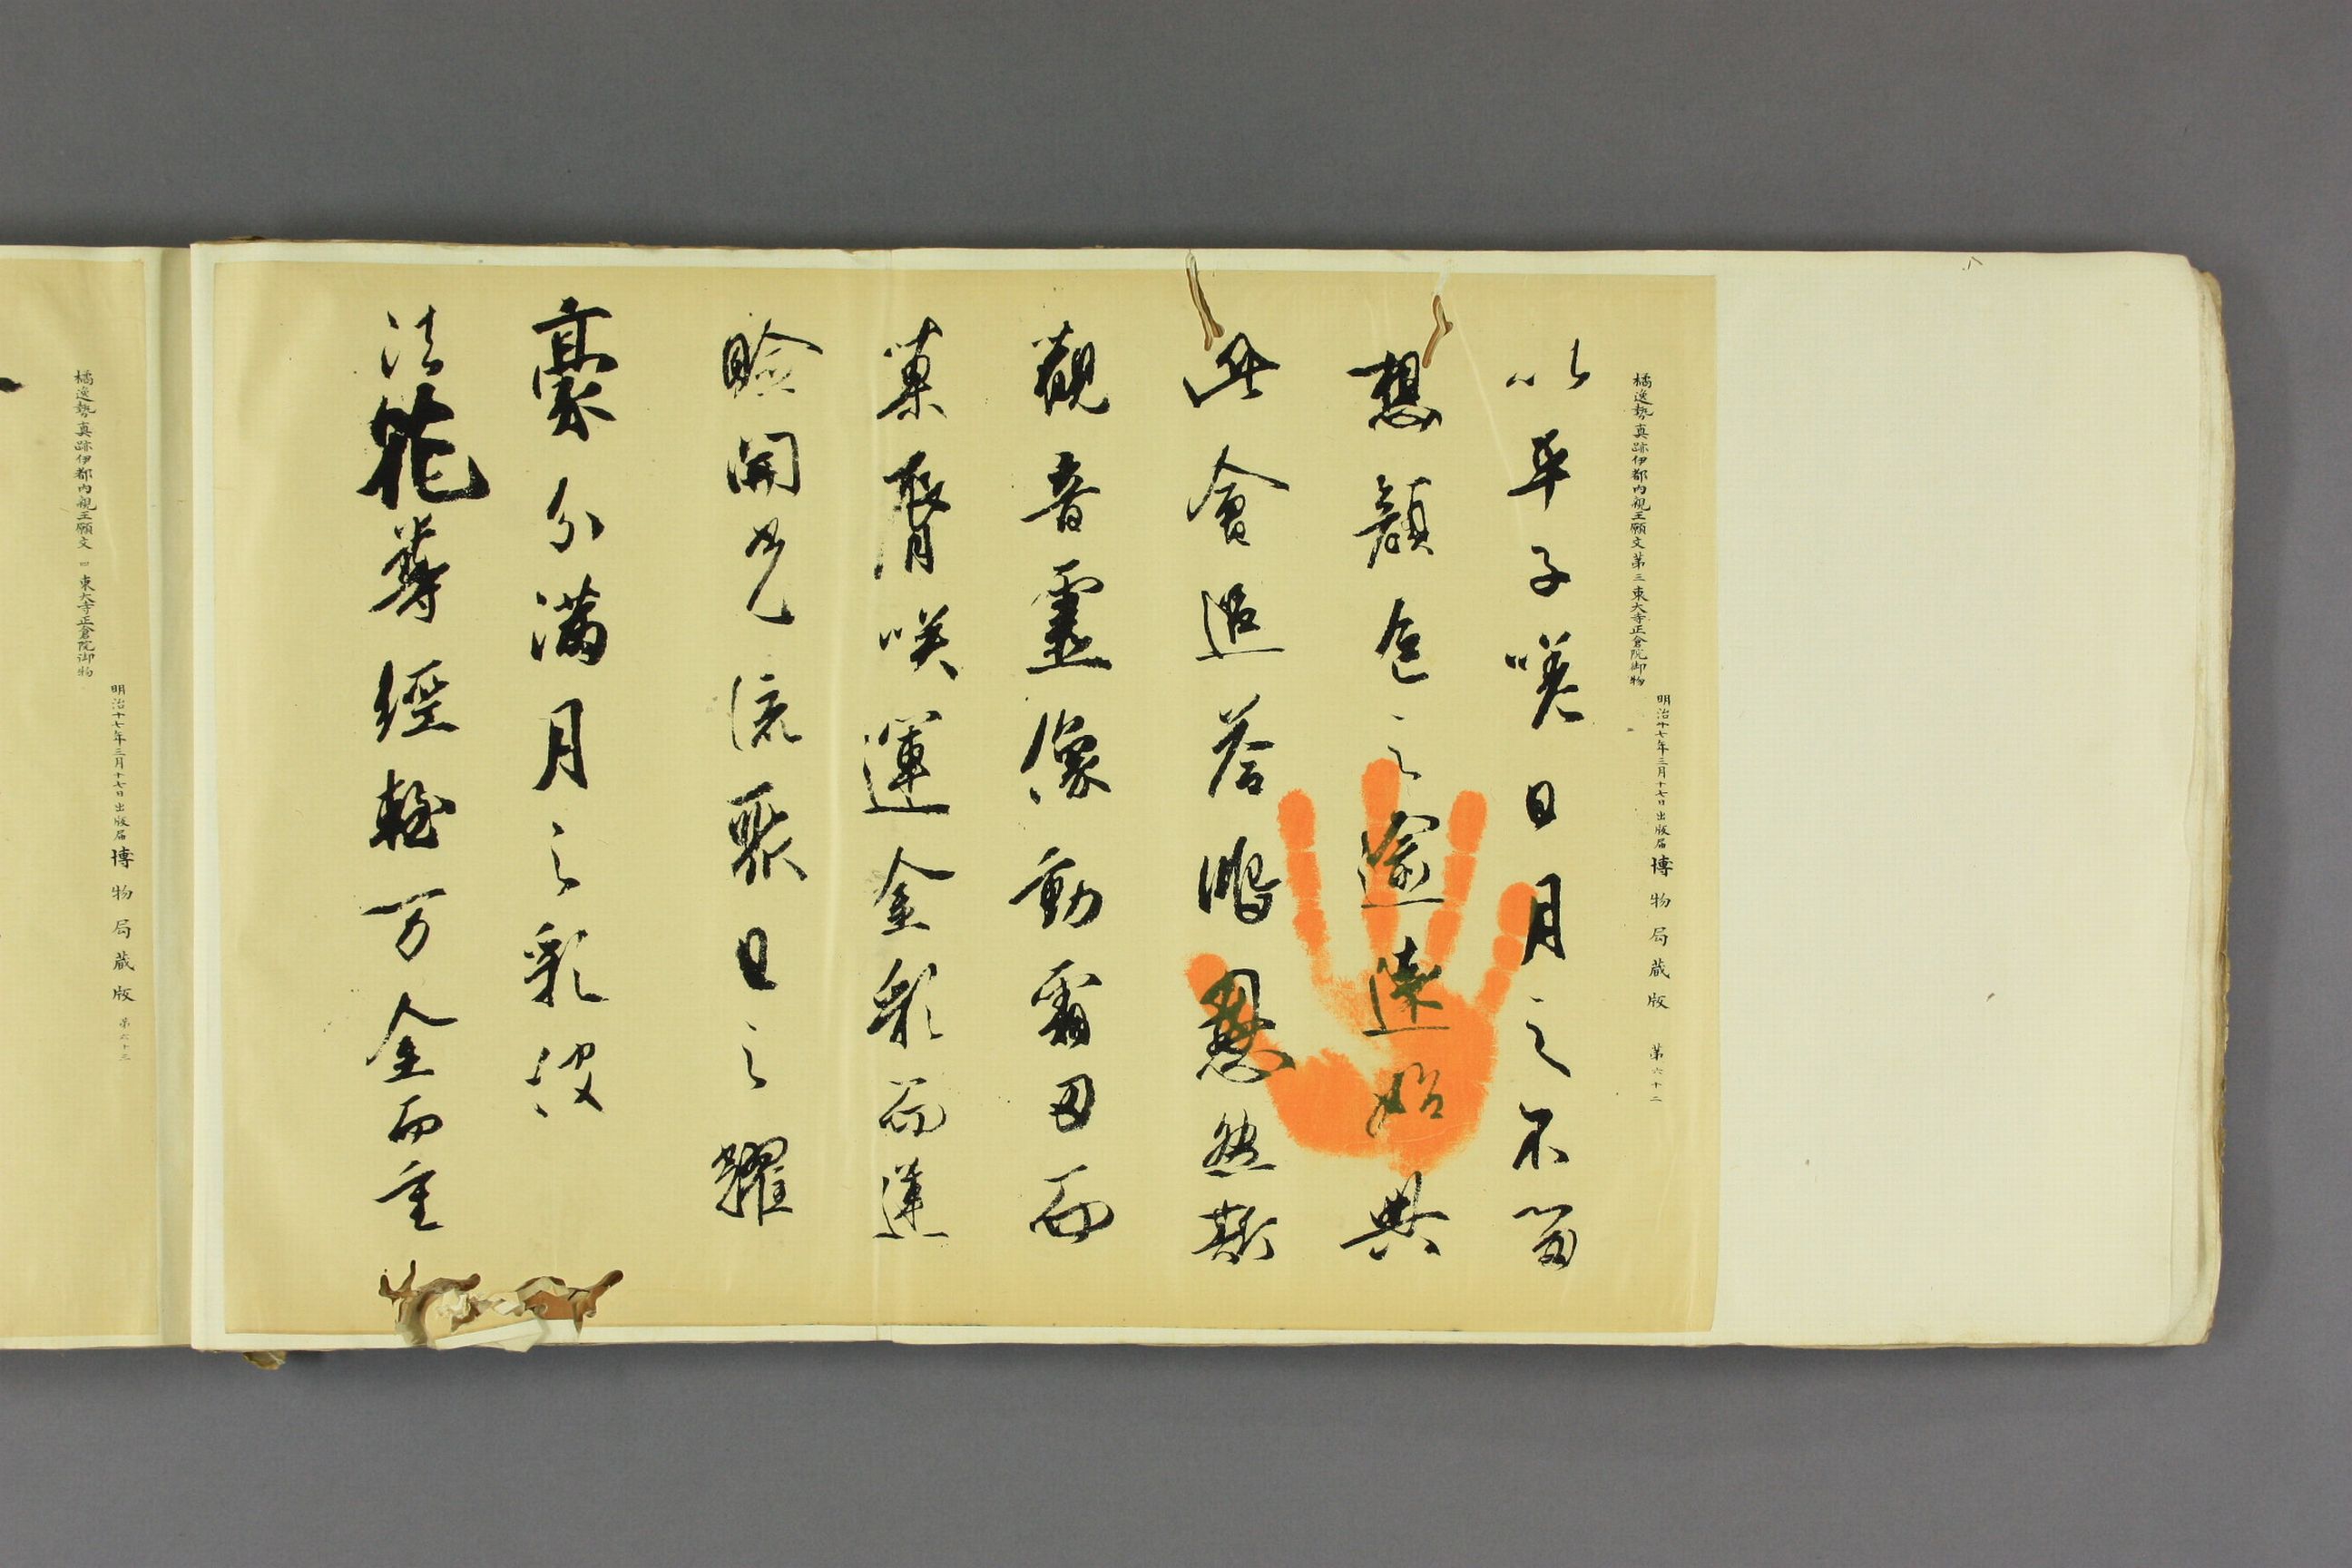 橘逸勢真跡伊都内親王願文第三東大寺正倉院御物
明治十七年三月十七日出版届博物局蔵版 第六十二
以早子嗟日月之不留
想顔色之逾遠始興
此會追荅鴻恩然斯
觀音靈像動霜刃而
菓脣咲運金彩而蓮
瞼開光流聚日之耀
豪分満月之彩彼
法花尊經軽万金而重
橘逸勢真跡伊都内親王願文 四 東大寺正倉院御物
明治十七年三月十七日出版届博物局蔵版 第六十三